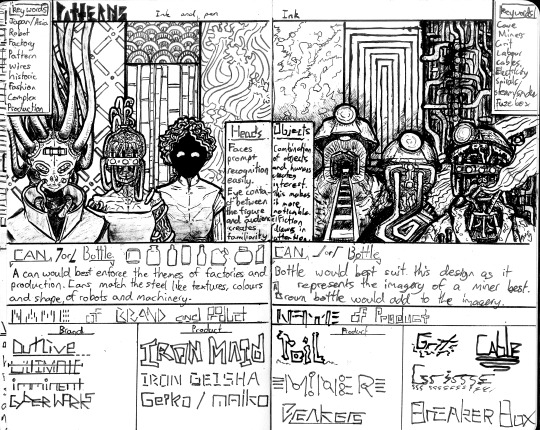 Keywords
Japan/Asia
Robot
Factory
Pattern
Wires
historic
Fashion
Complex
Production
PATTERNS
Ink and pen
Heads
Faces
prompt
recognition
easily.
Eye contact
between
the figure
and audience
creates
familiarity
CAN, or Bottle
A can would best enforce the themes of factories and
production. Cans match the steel like textures, colours
and shape, of robots and machinery.
NAME of BRAND and PRODUCT
Brand
OutLive
ULTIMATE
imminent
CYBERWORKS
Product
IRON MAID
IRON GEISHA
Geiko / maiko
Ink
Keywords
Cave
Mines
Labour
Cables
Electricity
Fuse box
Objects
Combination
of objects
and human
creates
interest.
This makes
it more
noticable.
Fiction
draws in
CAN, or Bottle
Bottle would best suit this design as it
represents the imagery of a miner best.
A crown bottle would add to the imagery.
NAME of Product
Product
TOIL
MINER
Breakers
CABLE
Breaker Box